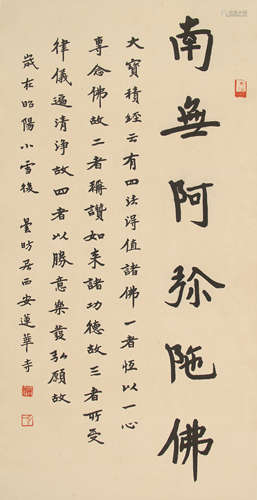 南無阿弥陁佛
大寶積經云有四法得值諸佛一者恆以一心
專念佛故二者稱讚如来諸功德故三者所受
律儀遍清淨故四者以勝意樂發弘願故
歲在昭陽小雪後 曇昉居西安蓮華寺